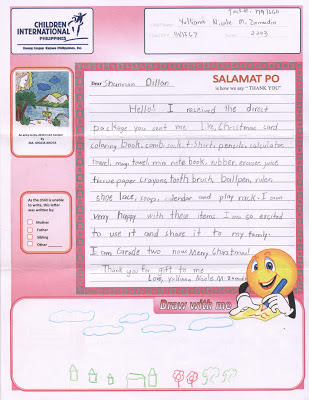 CHILDREN
INTERNATIONAL
PHILIPPINES
Yulliana Nicole M.
2203
SALAMAT PO
is how we say "THANK YOU"
Dear Shannon Dillon
Hello! I received the direct
package you sent me like, Christmas card
coloring book, comb, sock, t-shirts, pencils, calculator
towel, mug, towel, mini note book, rubber, eraser, juice
tissue paper, crayons, tooth brush, ballpen, ruler
shoe lace, soap, calendar and play rack. I am
very happy with these items. I am so excited
to use it and share it to my family.
I am Grade two now. Merry Christmas!
Thank you for gift to me
Love, Yulliana Nicole M.
As the child is unable
to write, this letter
was written by:
Mother
Father
Sibling
Other
Draw with me